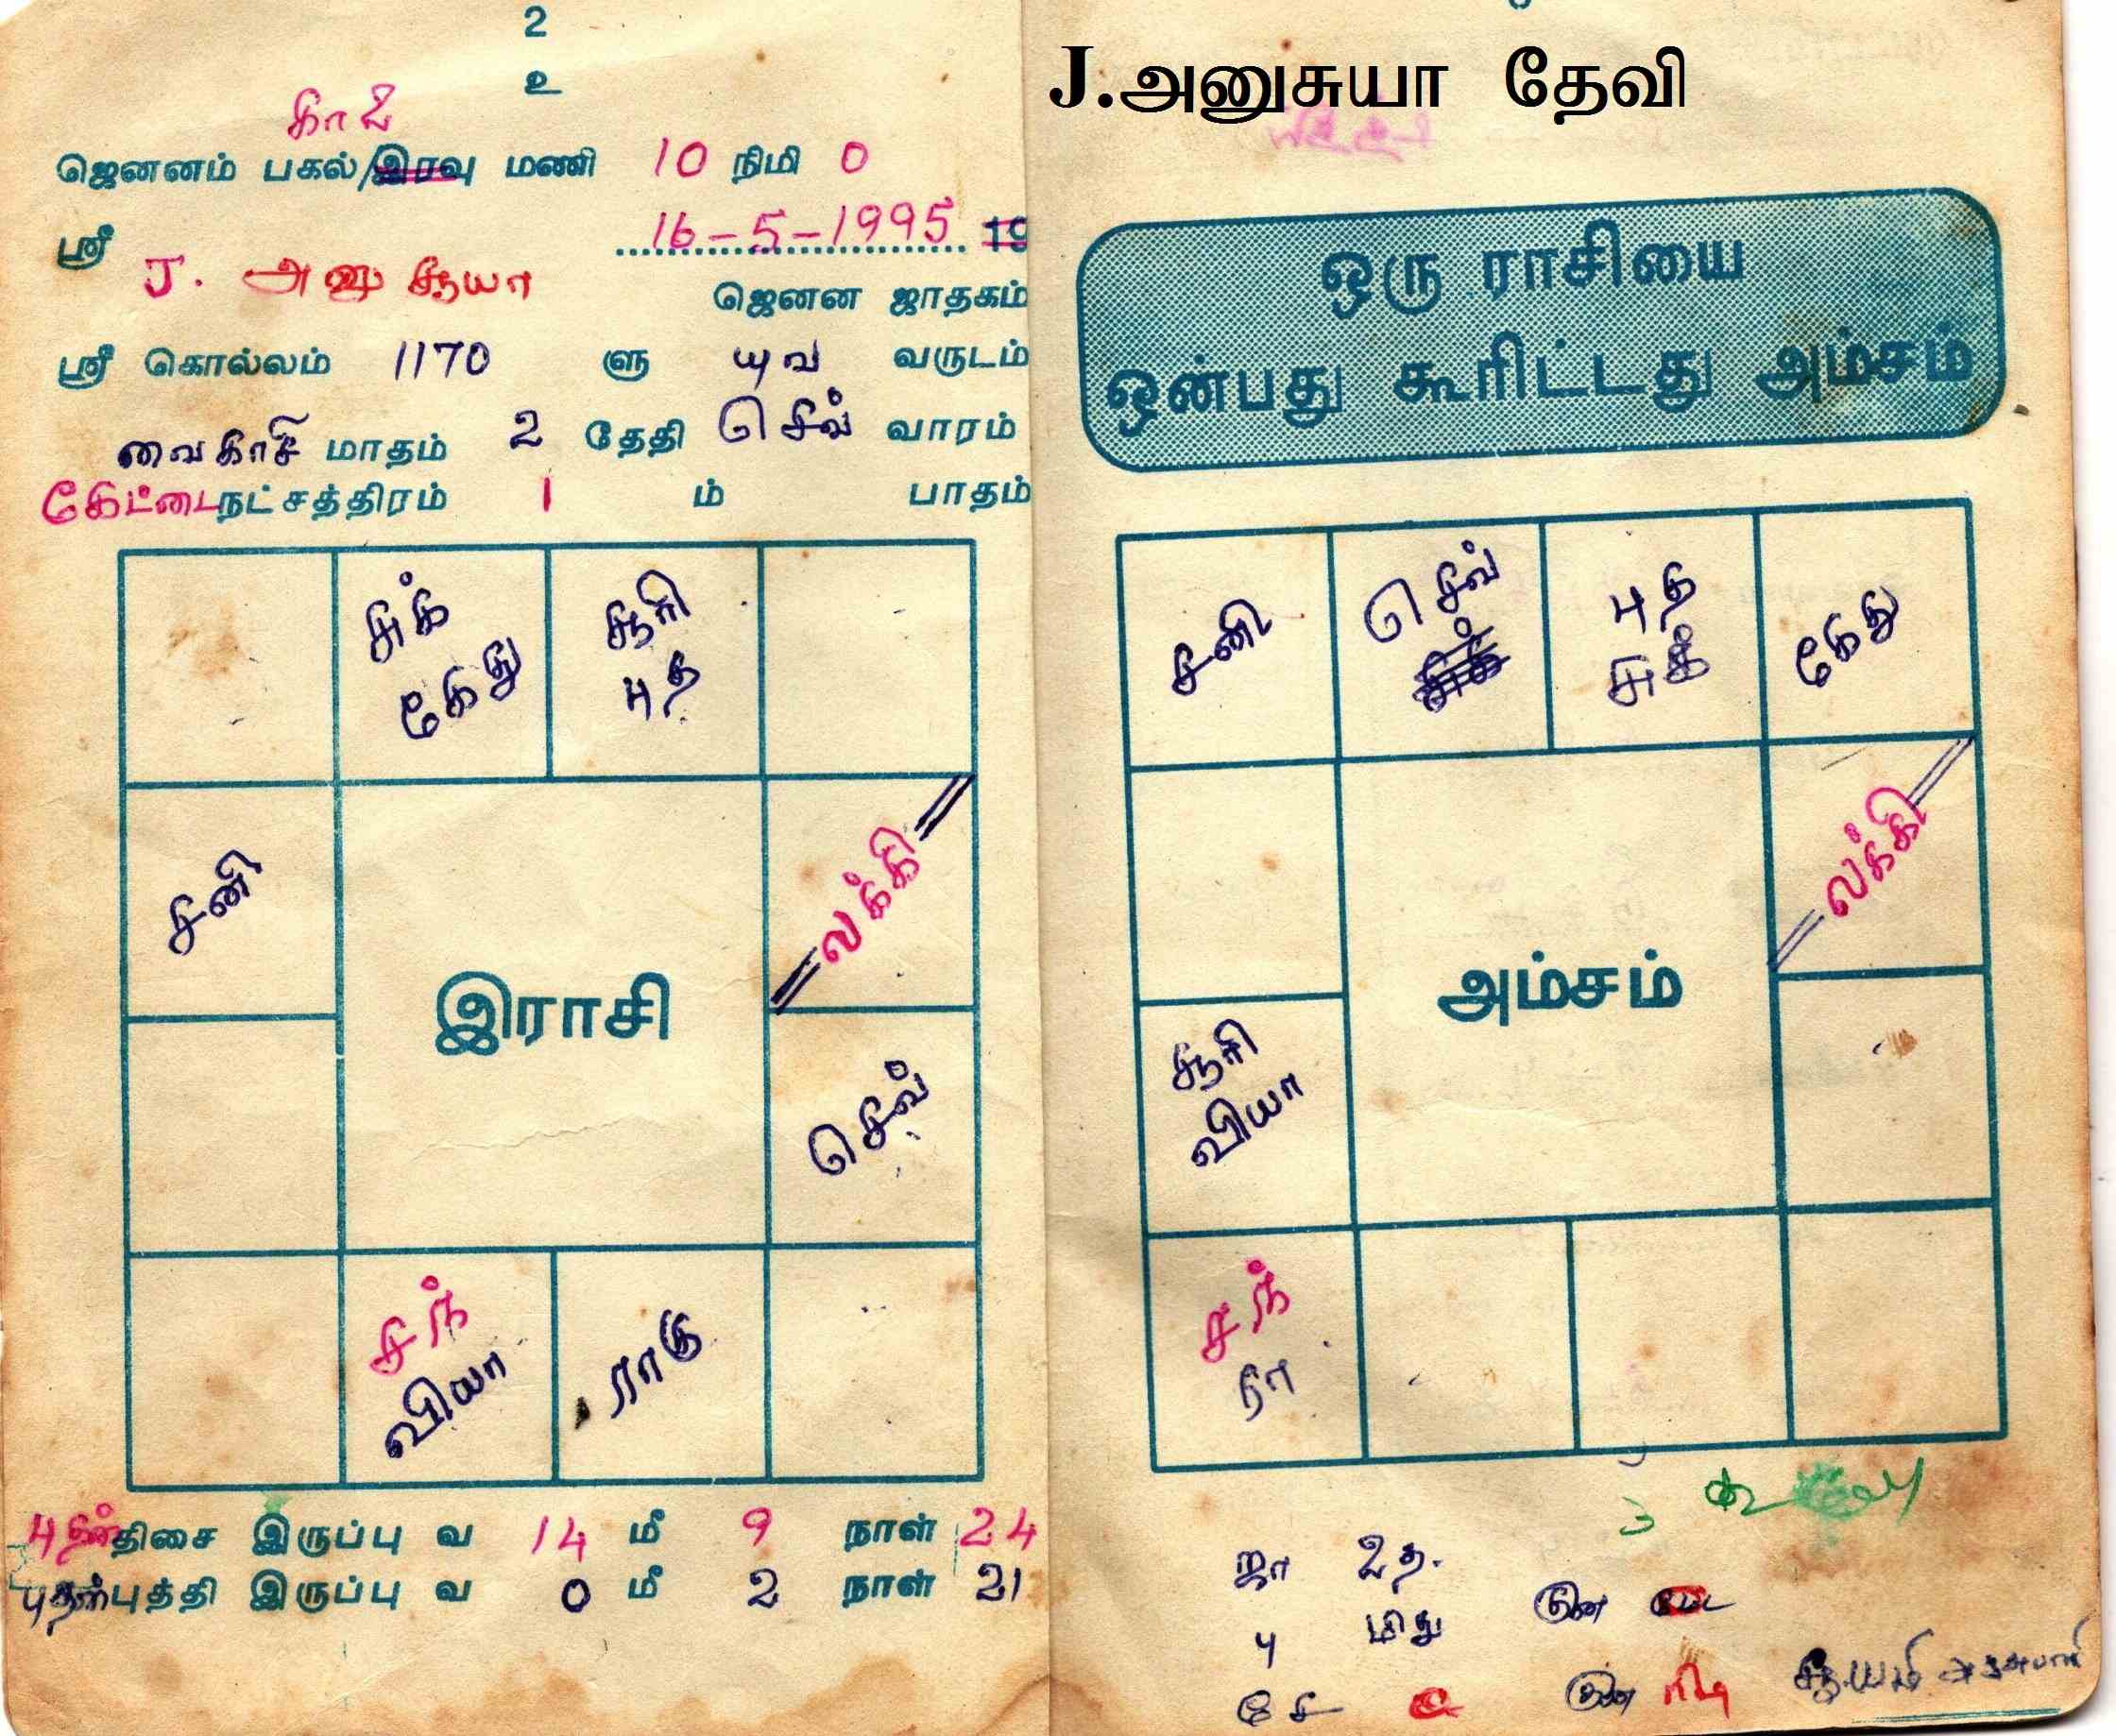 2
உ
காலை
ஜெனனம் பகல்/இரவு மணி 10 நிமி 0
ஸ்ரீ 16-5-1995 19
J. அனுசூயா
ஜெனன ஜாதகம்
ஸ்ரீ கொல்லம் 1170 ளு யுவ வருடம்
வைகாசி மாதம் 2 தேதி செவ் வாரம்
கேட்டை நட்சத்திரம் 1 ம் பாதம்
சுக் சூரி
கேது புத
சனி லக்கி
இராசி
செவ்
சந் ராகு
வியா
புதன் திசை இருப்பு வ 14 மீ 9 நாள் 24
புதன் புத்தி இருப்பு வ 0 மீ 2 நாள் 21
J.அனுசுயா தேவி
ஒரு ராசியை
ஒன்பது கூரிட்டது அம்சம்
சனி செவ் புத கேது
சுக்
லக்கி
அம்சம்
சூரி
வியா
சந்
ரா